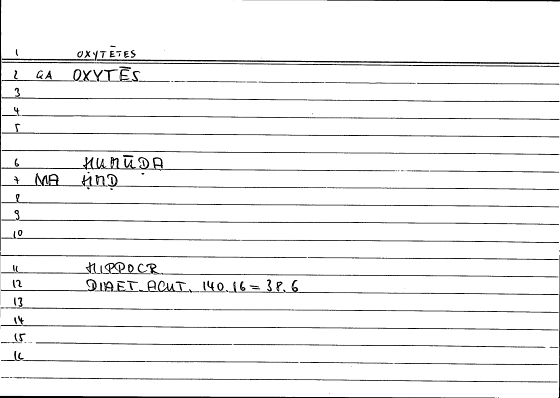 1 OXYTĒTES
2 GA OXYTĒS
3
4
5
6 ḤUMŪḌA
7 MA ḤMḌ
8
9
10
11 HIPPOCR
12 DIAET. ACUT. 140.16 = 38.6
13
14
15
16